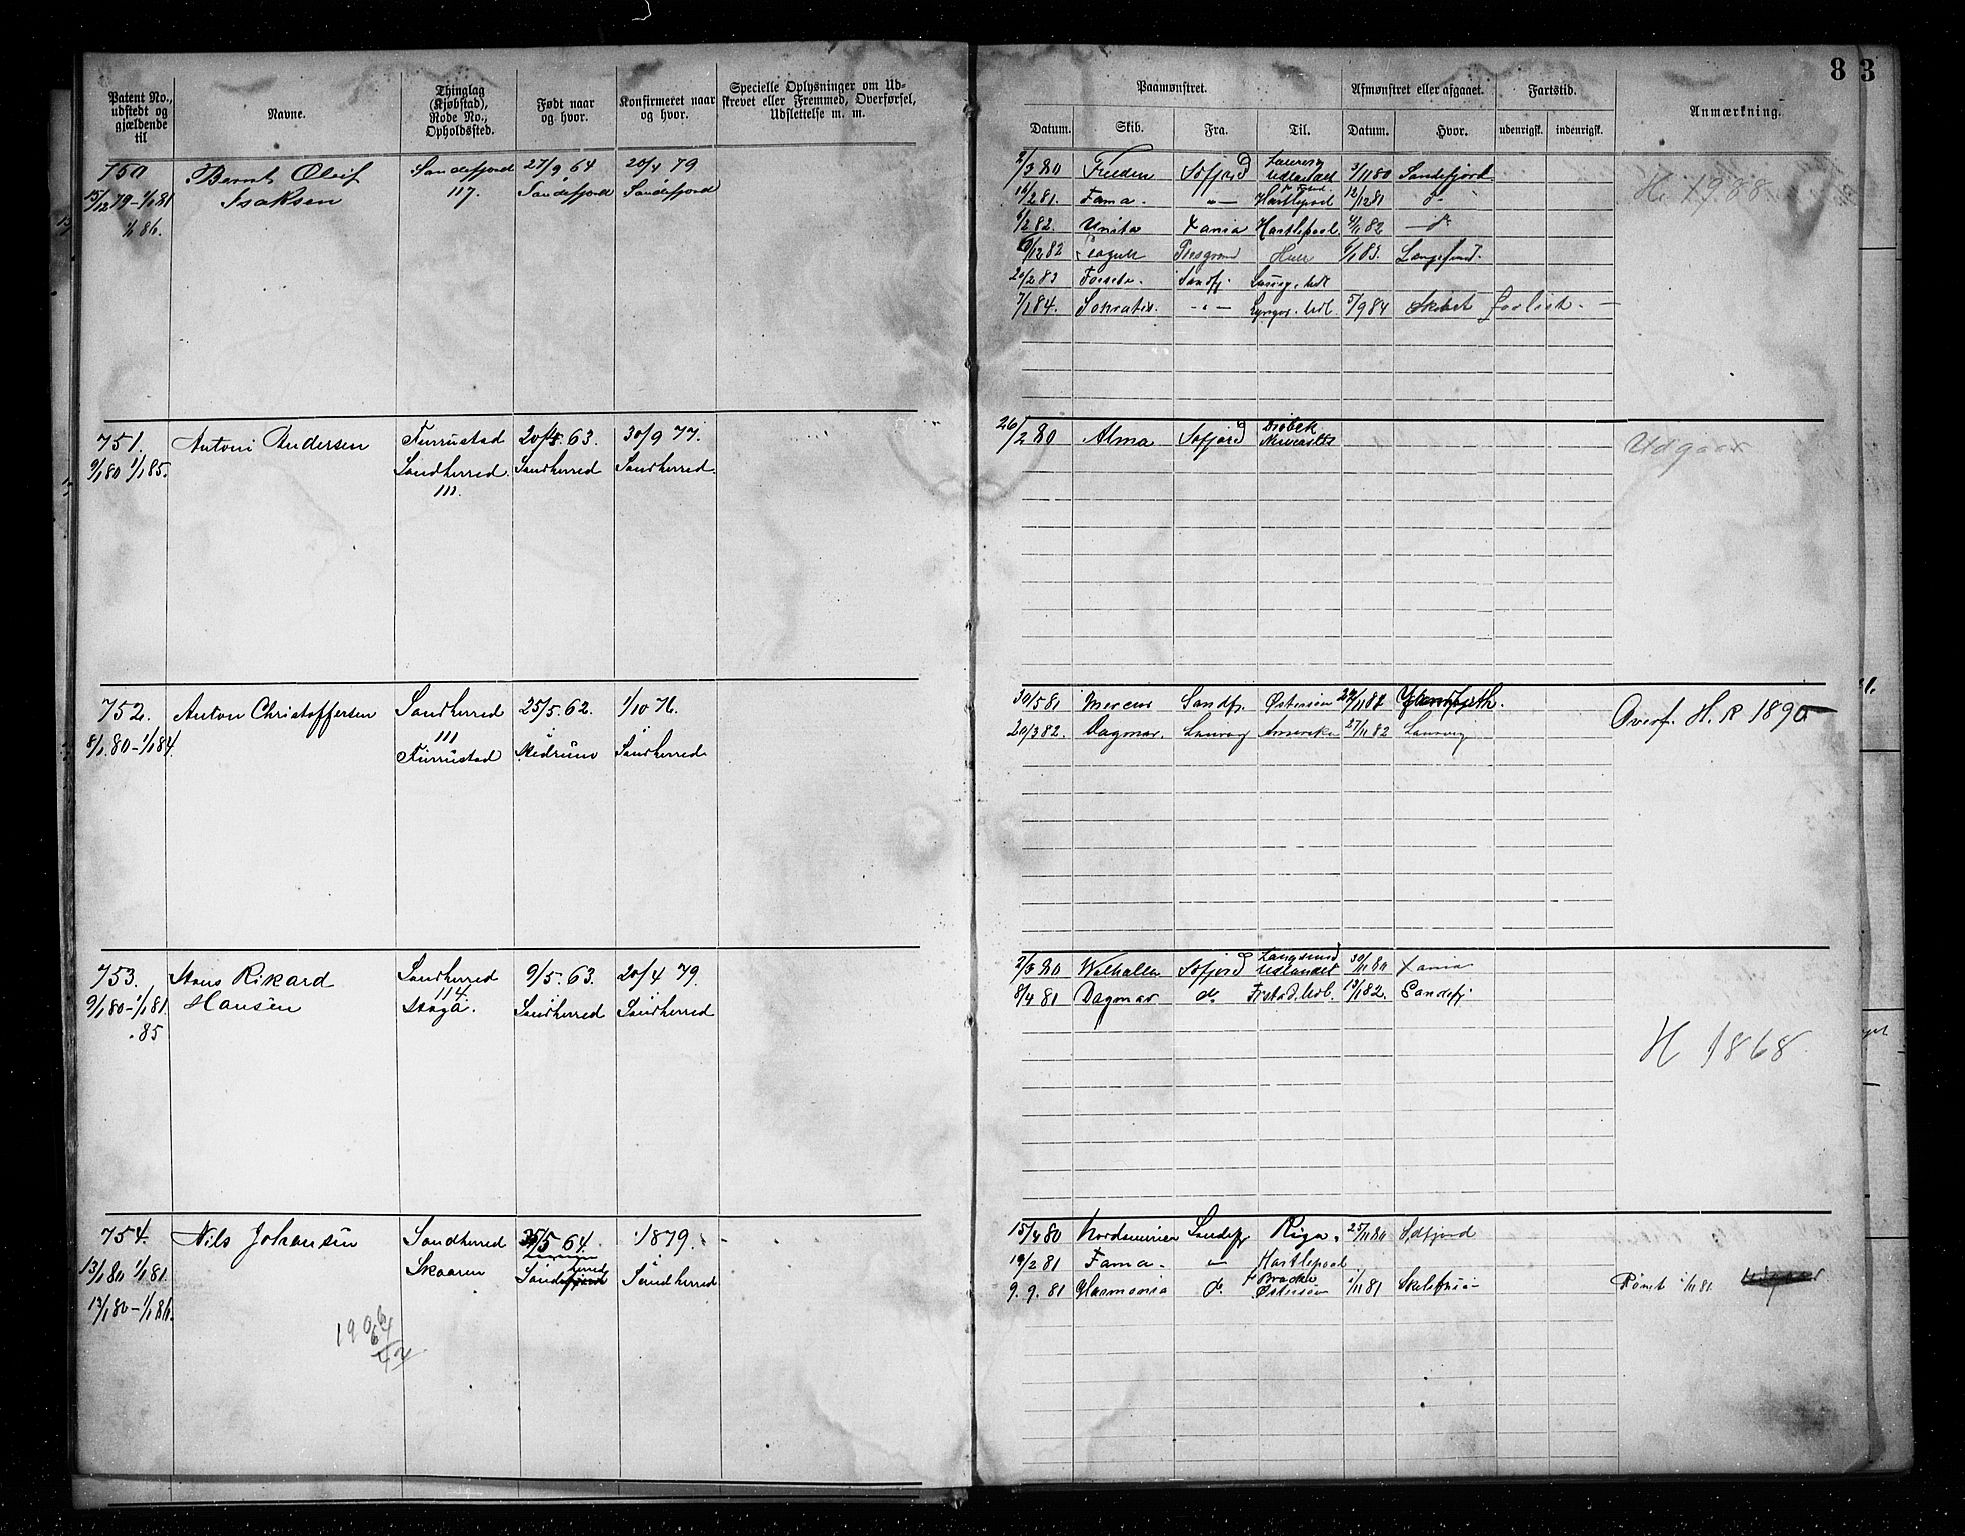 83
Patent No., udstedt og gjældende til
Navne.
Thinglag (Kjøbstad), Rode No., Opholdssted.
Født naar og hvor.
Konfirmeret naar og hvor.
Specielle Oplysninger om Udskrevet eller Fremmed, Overførsel, Udslettelse m. m.
Paamønstret.
Afmønstret eller afgaaet.
Fartstid.
Anmærkning.
Datum. Skib. Fra. Til. Datum. Hvor. udenrigsk. indenrigsk.
750 Bernt Oluf Sandefjord 27/9 64 20/4 79
15/12 79-1/1 81 Isaksen 117. Sandefjord Sandefjord
1/1 86.
2/3 80 Sofjord Udlandet 3/11 80 Sandefjord
2 81. Fama. " Hartlepool 12/12 81 do
2 82. Unita Xania Hartlepool 4/11 82 do
12 82 Hull 6/1 83. Langesund.
20/2 83 Sandfj.
7/1 84. Sokrates. " 5/9 84 Skibet forlist.
H. 1988
751. Antoni Andersen Furrustad 20/5 63. 30/9 77.
9/1 80 1/1 85. Sandherred. Sandherred Sandherred.
111.
26/2 80 Alma Sofjord Drøbak
Newcastle
Udgaar
752. Anton Christoffersen Sandherred 25/5. 62. 1/10 76.
8/1 80-1/1 84. 111 Medrum Sandherred
Furrustad
30/5 81 Mercur Sandfj. Østersøen
20/3 82. Dagmar. Laurvig Amerika 27/11 82 Laurvig
Overf. H. R 1890
753. Hans Rikard Sandherred 9/5. 63. 20/4 79.
9/1 80-1/1 81 Hansen 114 Sandherred Sandherred
.85
2/3 80 Walhalla Sofjord Langesund Udlandet 30/11 80 Xania
8/4 81 Dagmar do Frstad. Udl. 13/1 82. Sandefj.
H 1868
754. Nils Johansen Sandherred 5 64. 1879.
13/1 80 1/1 81. Skaaren Sandherred Sandherred
13/1 80-1/1 86.
15/4 80 Sandefj Riga. 25/11 80 Sdfjord
19/2 81 Fama. " Hartlepool.
9. 9. 81 Harmonia do Østersøen 1/11 81
Rømt 1/11 81 Udgaar